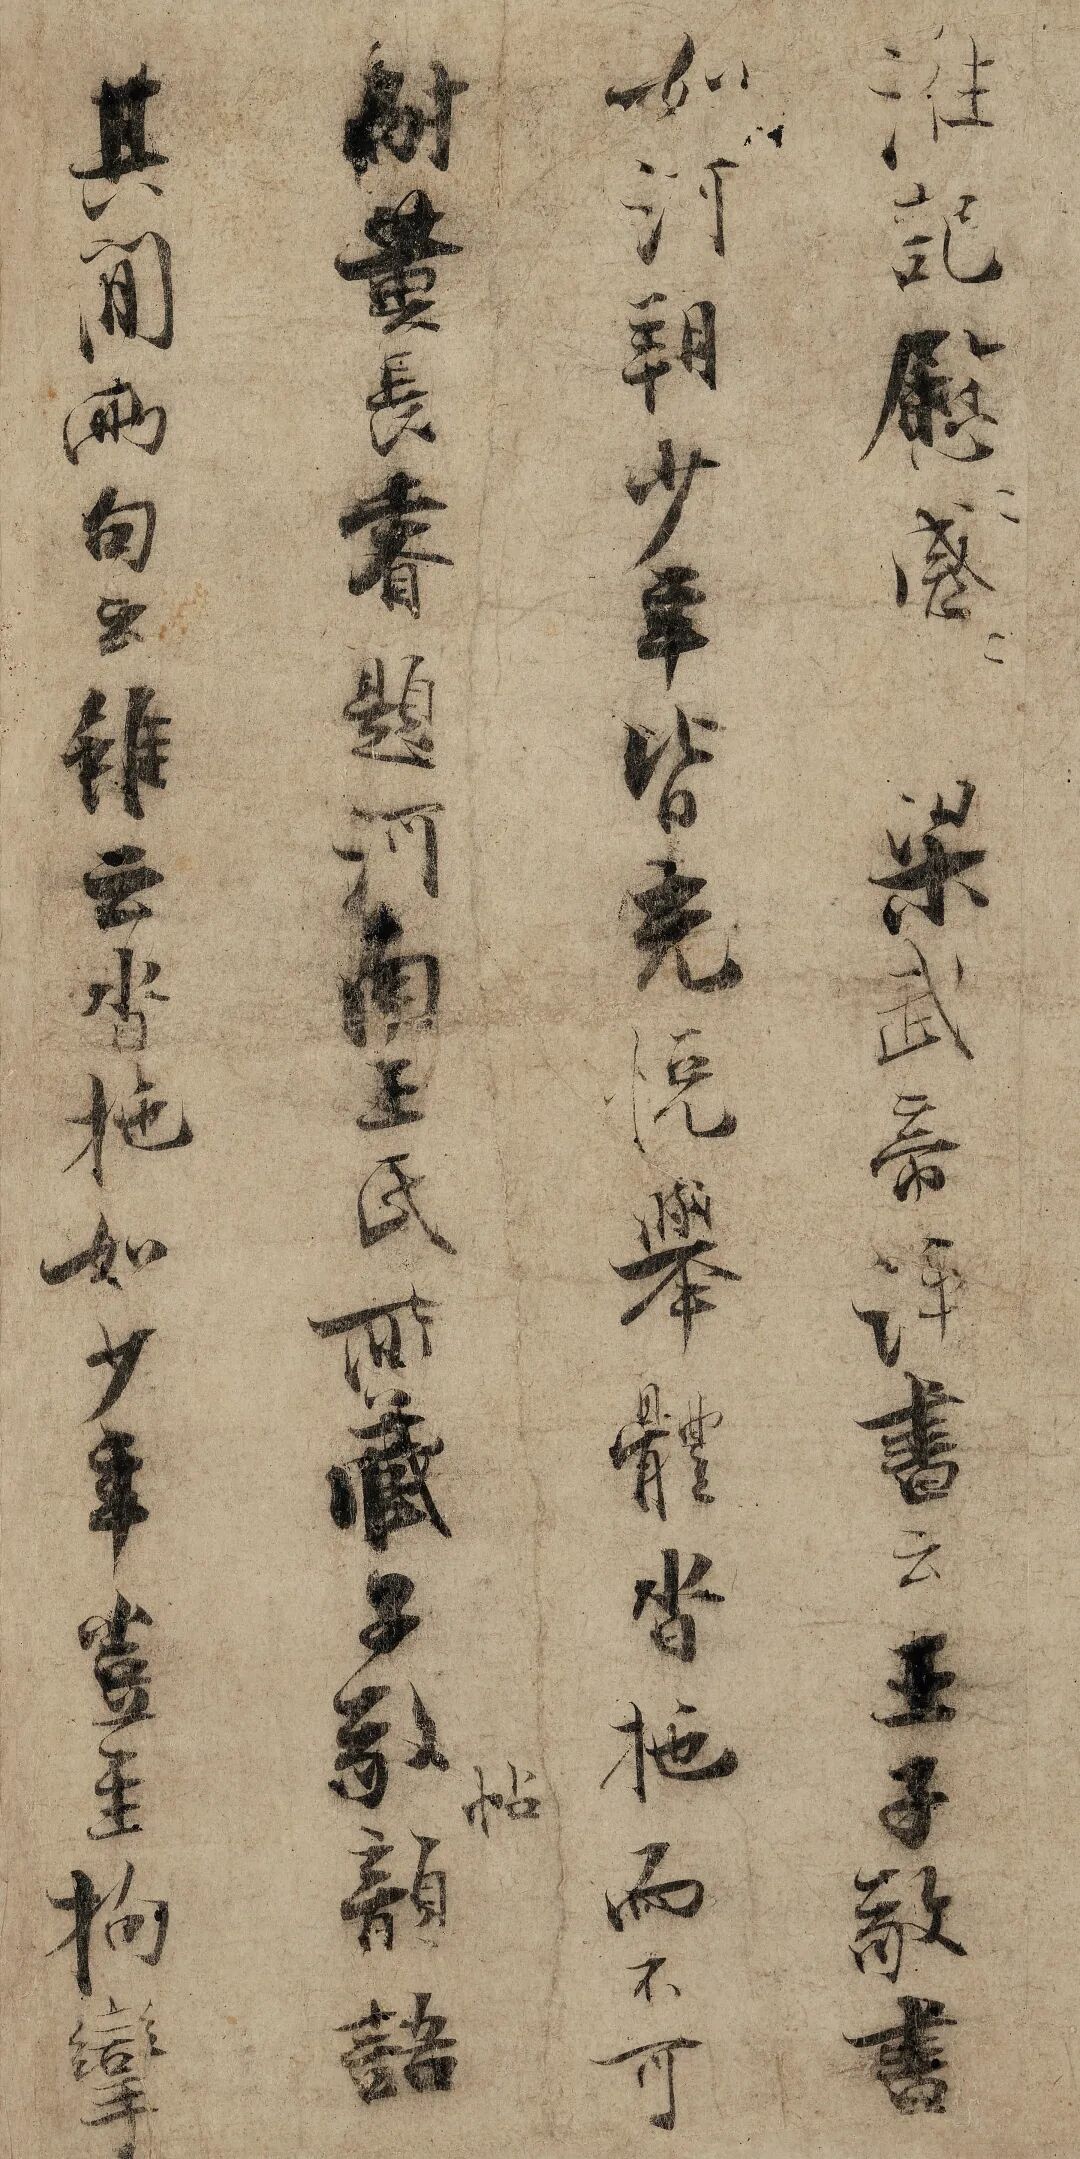 淮記慰感〻〻　梁武帝評書云王子敬書
如河朔少年皆充悅舉體沓拖而不可
耐黃長睿題河南王氏所藏子敬帖韻語
其間兩句云雖云沓拖如少年豈至拘攣